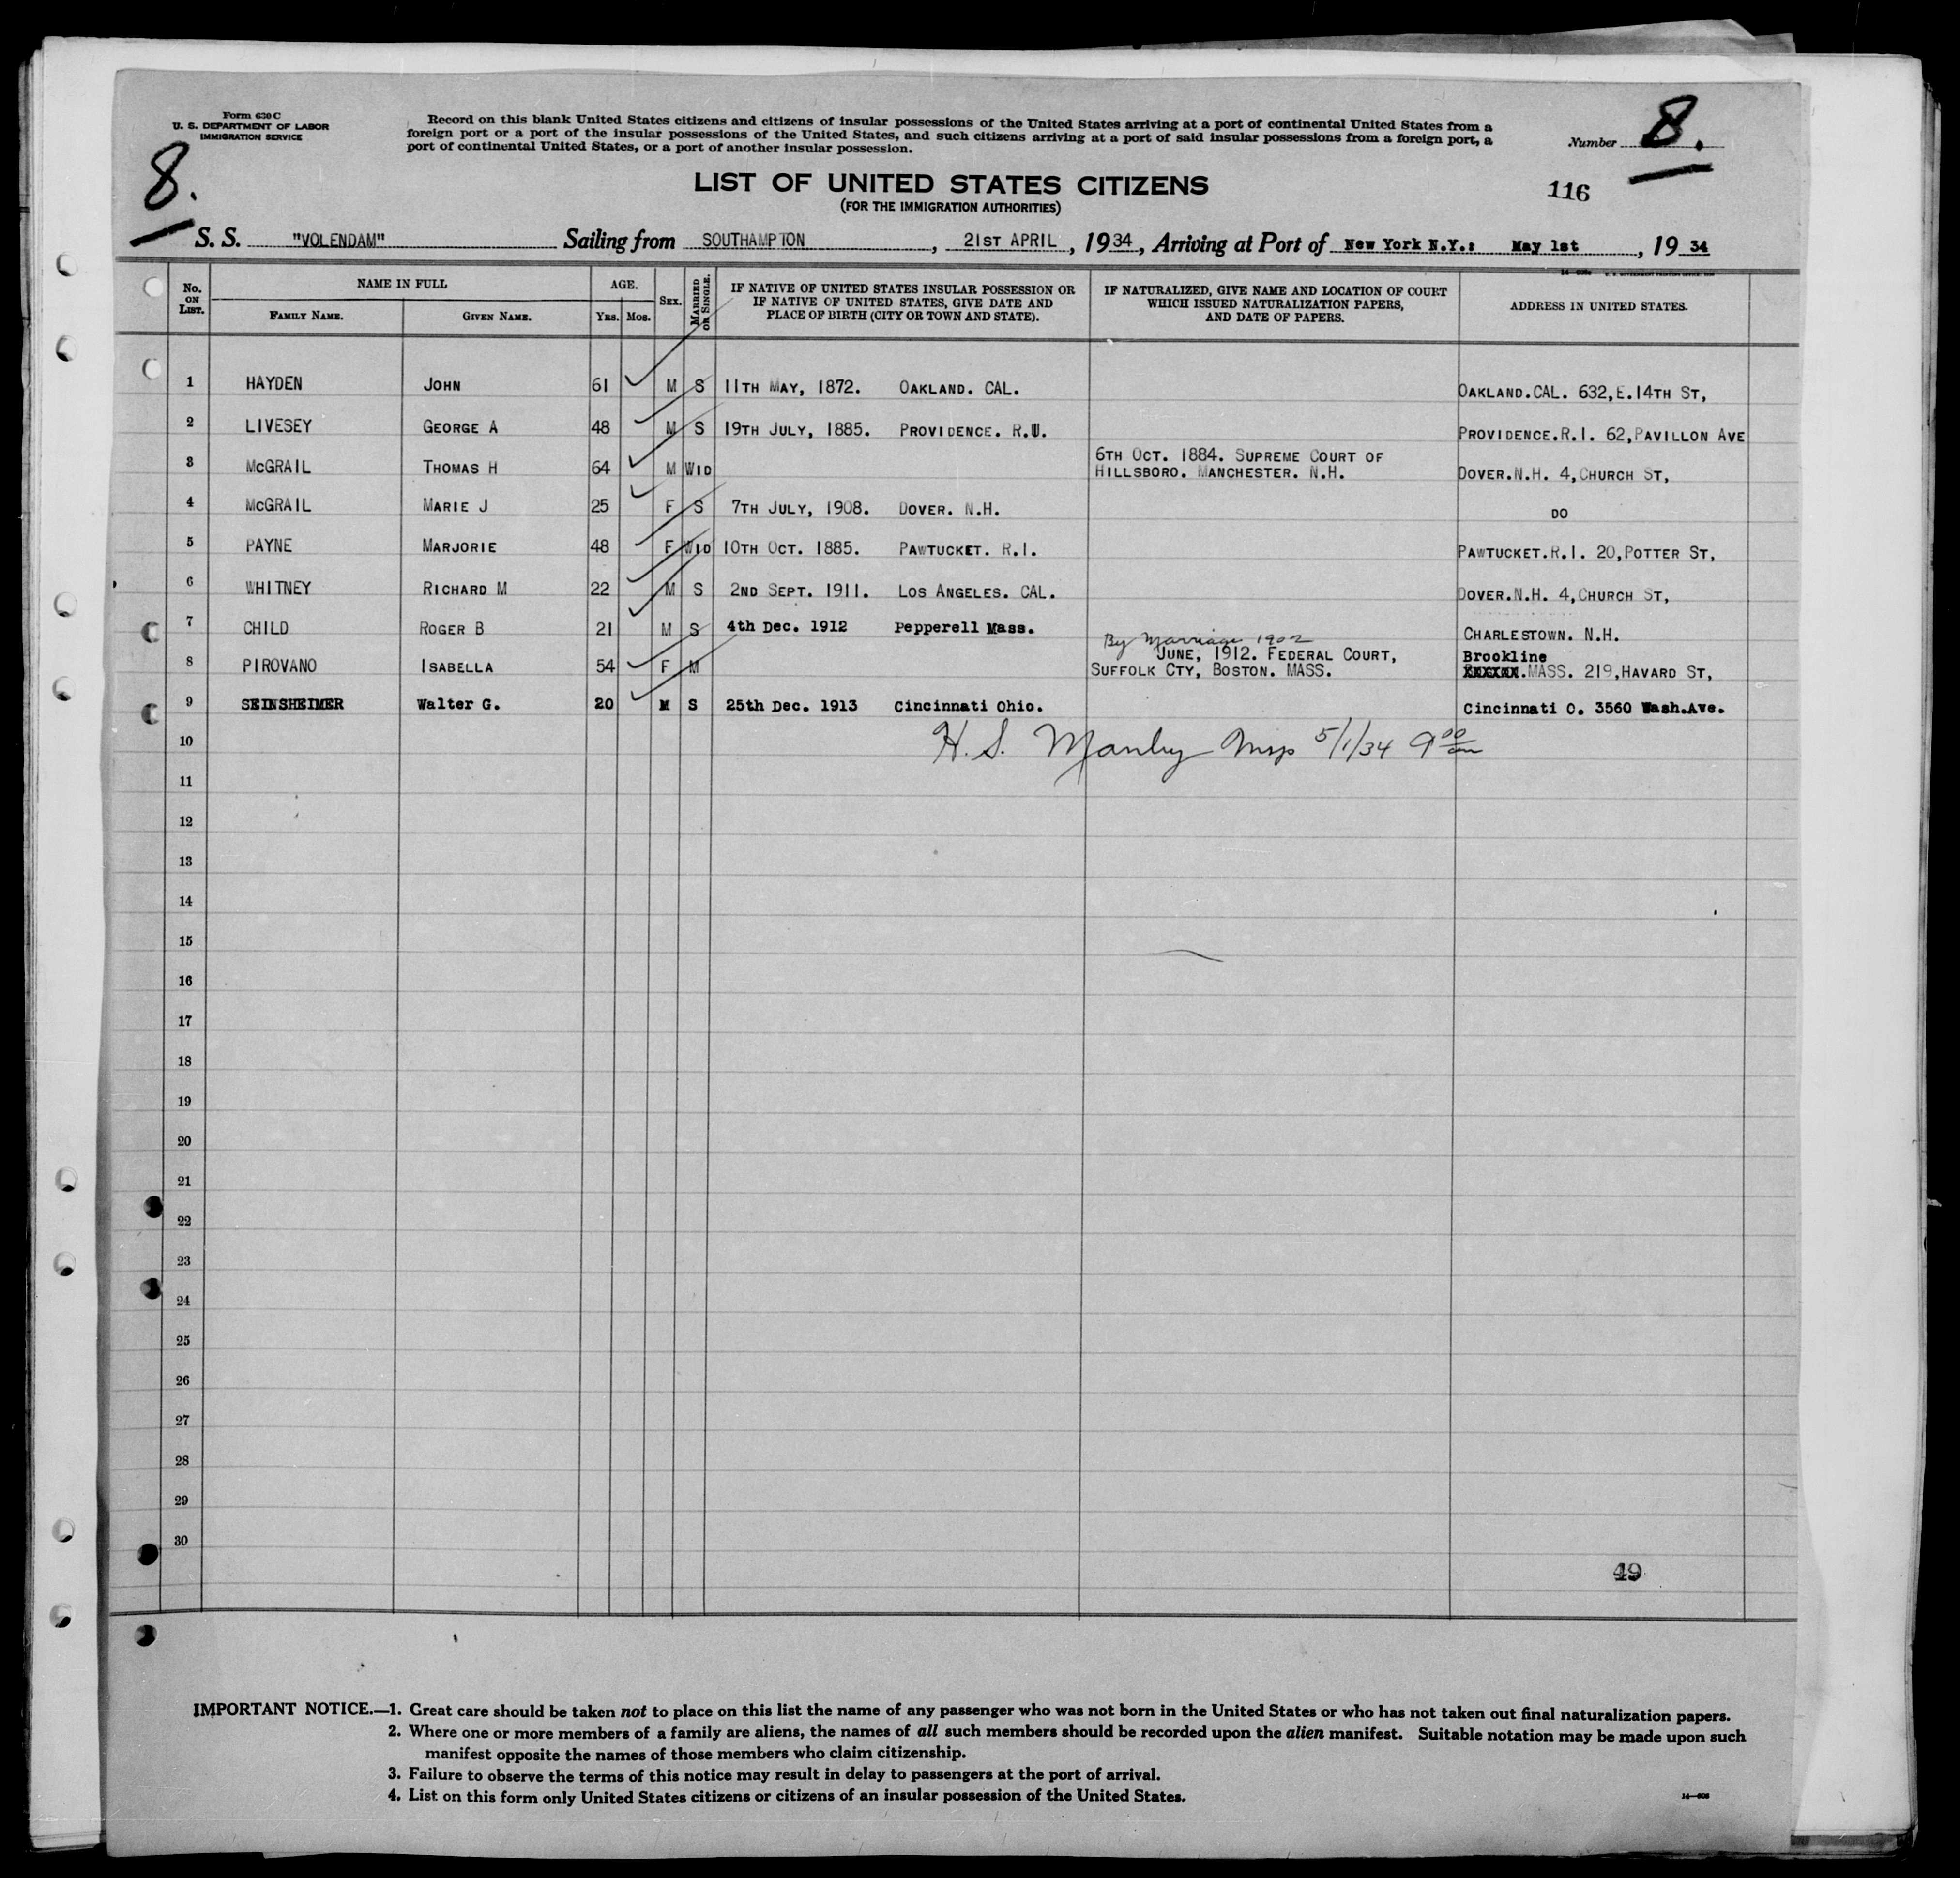 Form 630 C
U. S. DEPARTMENT OF LABOR
IMMIGRATION SERVICE
Record on this blank United States citizens and citizens of insular possessions of the United States arriving at a port of continental United States from a
foreign port or a port of the insular possessions of the United States, and such citizens arriving at a port of said insular possessions from a foreign port, a
port of continental United States, or a port of another insular possession.
Number 8.
8.
LIST OF UNITED STATES CITIZENS
(FOR THE IMMIGRATION AUTHORITIES)
116
S. S. "VOLENDAM" Sailing from SOUTHAMPTON, 21ST APRIL, 1934, Arriving at Port of New York N.Y.: May 1st, 19 34
No. ON LIST. NAME IN FULL FAMILY NAME. GIVEN NAME. AGE. YRS. MOS. SEX. MARRIED OR SINGLE. IF NATIVE OF UNITED STATES INSULAR POSSESSION OR IF NATIVE OF UNITED STATES, GIVE DATE AND PLACE OF BIRTH (CITY OR TOWN AND STATE). IF NATURALIZED, GIVE NAME AND LOCATION OF COURT WHICH ISSUED NATURALIZATION PAPERS, AND DATE OF PAPERS. ADDRESS IN UNITED STATES.
1 HAYDEN JOHN 61 M S 11TH MAY, 1872. OAKLAND. CAL. OAKLAND.CAL. 632,E.14TH ST,
2 LIVESEY GEORGE A 48 M S 19TH JULY, 1885. PROVIDENCE. R.I. PROVIDENCE.R.I. 62,PAVILLON AVE
3 McGRAIL THOMAS H 64 M WID 6TH OCT. 1884. SUPREME COURT OF HILLSBORO. MANCHESTER. N.H. DOVER.N.H. 4,CHURCH ST,
4 McGRAIL MARIE J 25 F S 7TH JULY, 1908. DOVER. N.H. DO
5 PAYNE MARJORIE 48 F WID 10TH OCT. 1885. PAWTUCKET. R.I. PAWTUCKET.R.I. 20,POTTER ST,
6 WHITNEY RICHARD M 22 M S 2ND SEPT. 1911. LOS ANGELES. CAL. DOVER.N.H. 4,CHURCH ST,
7 CHILD ROGER B 21 M S 4th Dec. 1912 Pepperell Mass. CHARLESTOWN. N.H.
8 PIROVANO ISABELLA 54 F M By Marriage 1902 JUNE, 1912. FEDERAL COURT, SUFFOLK CTY, BOSTON. MASS. Brookline .MASS. 219,HAVARD ST,
9 SEINSHEIMER Walter G. 20 M S 25th Dec. 1913 Cincinnati Ohio. Cincinnati O. 3560 Wash.Ave.
H. S. Manby Insp 5/1/34 9 00 am
10
11
12
13
14
15
16
17
18
19
20
21
22
23
24
25
26
27
28
29
30
49
IMPORTANT NOTICE.—1. Great care should be taken not to place on this list the name of any passenger who was not born in the United States or who has not taken out final naturalization papers.
2. Where one or more members of a family are aliens, the names of all such members should be recorded upon the alien manifest. Suitable notation may be made upon such
manifest opposite the names of those members who claim citizenship.
3. Failure to observe the terms of this notice may result in delay to passengers at the port of arrival.
4. List on this form only United States citizens or citizens of an insular possession of the United States.